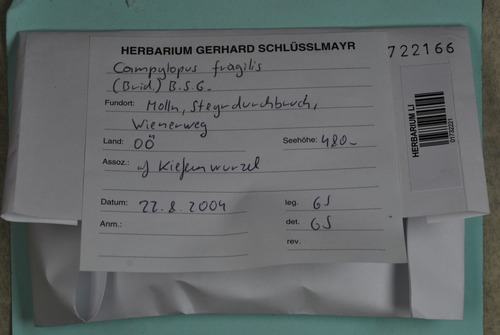 HERBARIUM GERHARD SCHLÜSSLMAYR
722166
Campylopus fragilis
(Brid.) B.S.G.
Fundort: Molln, Steyrdurchbruch,
Wienerweg
Land: OÖ Seehöhe: 480-
Assoz.: auf Kiefernwurzel
Datum: 22.8.2004 leg. GS
Anm.: det. GS
rev.
HERBARIUM LI
01732221